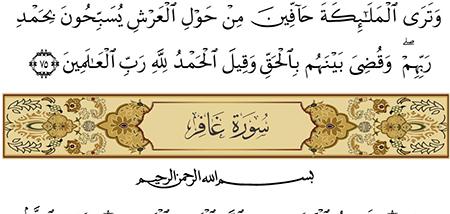 وَتَرَى الْمَلَٰٓئِكَةَ حَآفِّينَ مِنْ حَوْلِ الْعَرْشِ يُسَبِّحُونَ بِحَمْدِ
رَبِّهِمْ ۖ وَقُضِىَ بَيْنَهُم بِالْحَقِّ وَقِيلَ الْحَمْدُ لِلَّهِ رَبِّ الْعَٰلَمِينَ ﴿٧٥﴾
سُورَةُ غَافِرٍ
بسم الله الرحمن الرحيم